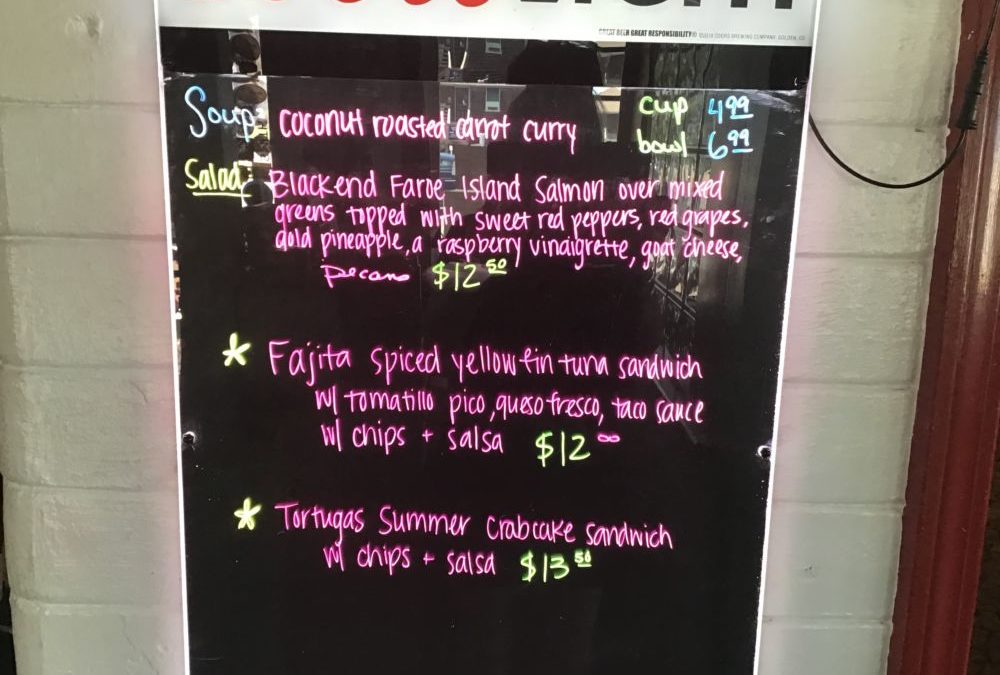 GREAT BEER GREAT RESPONSIBILITY®
Soup coconut roasted carrot curry cup 4.99
bowl 6.99
Salad: Blackend Faroe Island Salmon over mixed
greens topped with sweet red peppers, red grapes,
gold pineapple, a raspberry vinaigrette, goat cheese,
pecans $12 50
* Fajita spiced yellowfin tuna sandwich
w/ tomatillo pico, queso fresco, taco sauce
w/ chips + salsa $12 00
* Tortugas Summer crabcake sandwich
w/ chips + salsa $13 50